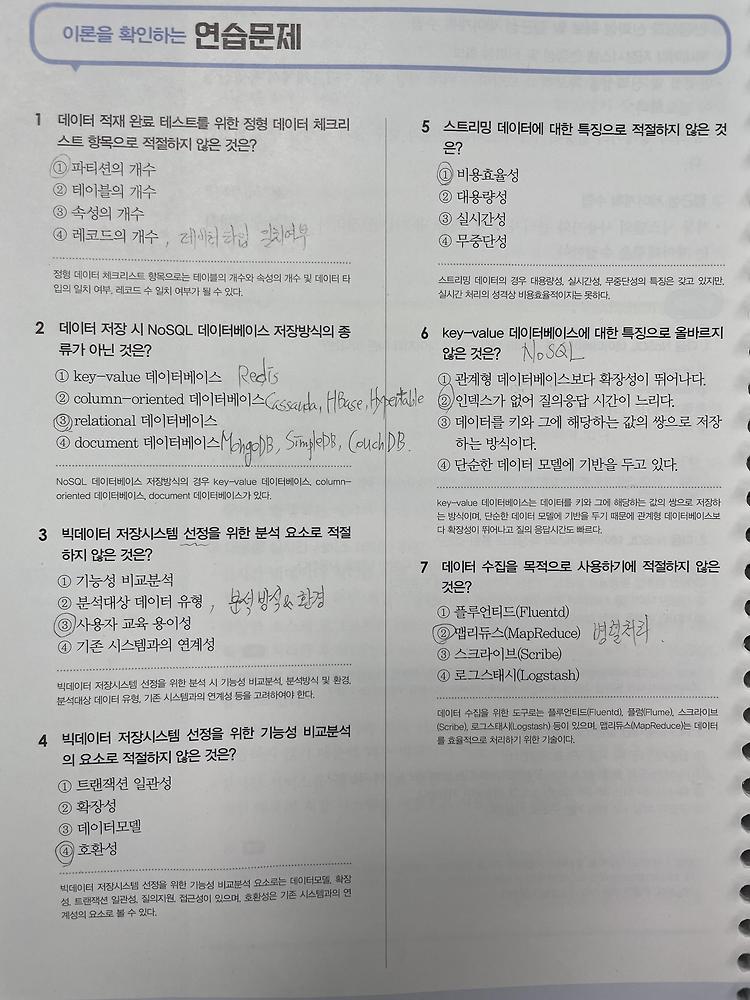 이론을 확인하는 연습문제
1 데이터 적재 완료 테스트를 위한 정형 데이터 체크리
스트 항목으로 적절하지 않은 것은?
① 파티션의 개수
② 테이블의 개수
③ 속성의 개수
④ 레코드의 개수, 데이터타입 일치여부
정형 데이터 체크리스트 항목으로는 테이블의 개수와 속성의 개수 및 데이터 타
입의 일치 여부, 레코드 수 일치 여부가 될 수 있다.
2 데이터 저장 시 NoSQL 데이터베이스 저장방식의 종
류가 아닌 것은?
① key-value 데이터베이스 Redis
② column-oriented 데이터베이스 Cassanda, HBase, Hypertable
③ relational 데이터베이스
④ document 데이터베이스 MongoDB, SimpleDB, CouchDB.
NoSQL 데이터베이스 저장방식의 경우 key-value 데이터베이스, column-
oriented 데이터베이스, document 데이터베이스가 있다.
3 빅데이터 저장시스템 선정을 위한 분석 요소로 적절
하지 않은 것은?
① 기능성 비교분석
② 분석대상 데이터 유형, 분석방식&환경
③ 사용자 교육 용이성
④ 기존 시스템과의 연계성
빅데이터 저장시스템 선정을 위한 분석 시 기능성 비교분석, 분석방식 및 환경,
분석대상 데이터 유형, 기존 시스템과의 연계성 등을 고려하여야 한다.
4 빅데이터 저장시스템 선정을 위한 기능성 비교분석
의 요소로 적절하지 않은 것은?
① 트랜잭션 일관성
② 확장성
③ 데이터모델
④ 호환성
빅데이터 저장시스템 선정을 위한 기능성 비교분석 요소로는 데이터모델, 확장
성, 트랜잭션 일관성, 질의지원, 접근성이 있으며, 호환성은 기존 시스템과의 연
계성의 요소로 볼 수 있다.
5 스트리밍 데이터에 대한 특징으로 적절하지 않은 것
은?
① 비용효율성
② 대용량성
③ 실시간성
④ 무중단성
스트리밍 데이터의 경우 대용량성, 실시간성, 무중단성의 특징은 갖고 있지만,
실시간 처리의 성격상 비용효율적이지는 못하다.
6 key-value 데이터베이스에 대한 특징으로 올바르지
않은 것은? NoSQL
① 관계형 데이터베이스보다 확장성이 뛰어나다.
② 인덱스가 없어 질의응답 시간이 느리다.
③ 데이터를 키와 그에 해당하는 값의 쌍으로 저장
하는 방식이다.
④ 단순한 데이터 모델에 기반을 두고 있다.
key-value 데이터베이스는 데이터를 키와 그에 해당하는 값의 쌍으로 저장하
는 방식이며, 단순한 데이터 모델에 기반을 두기 때문에 관계형 데이터베이스보
다 확장성이 뛰어나고 질의 응답시간도 빠르다.
7 데이터 수집을 목적으로 사용하기에 적절하지 않은
것은?
① 플루언티드(Fluentd)
② 맵리듀스(MapReduce) 병렬처리.
③ 스크라이브(Scribe)
④ 로그스태시(Logstash)
데이터 수집을 위한 도구로는 플루언티드(Fluentd), 플럼(Flume), 스크라이브
(Scribe), 로그스태시(Logstash) 등이 있으며, 맵리듀스(MapReduce)는 데이터
를 효율적으로 처리하기 위한 기술이다.